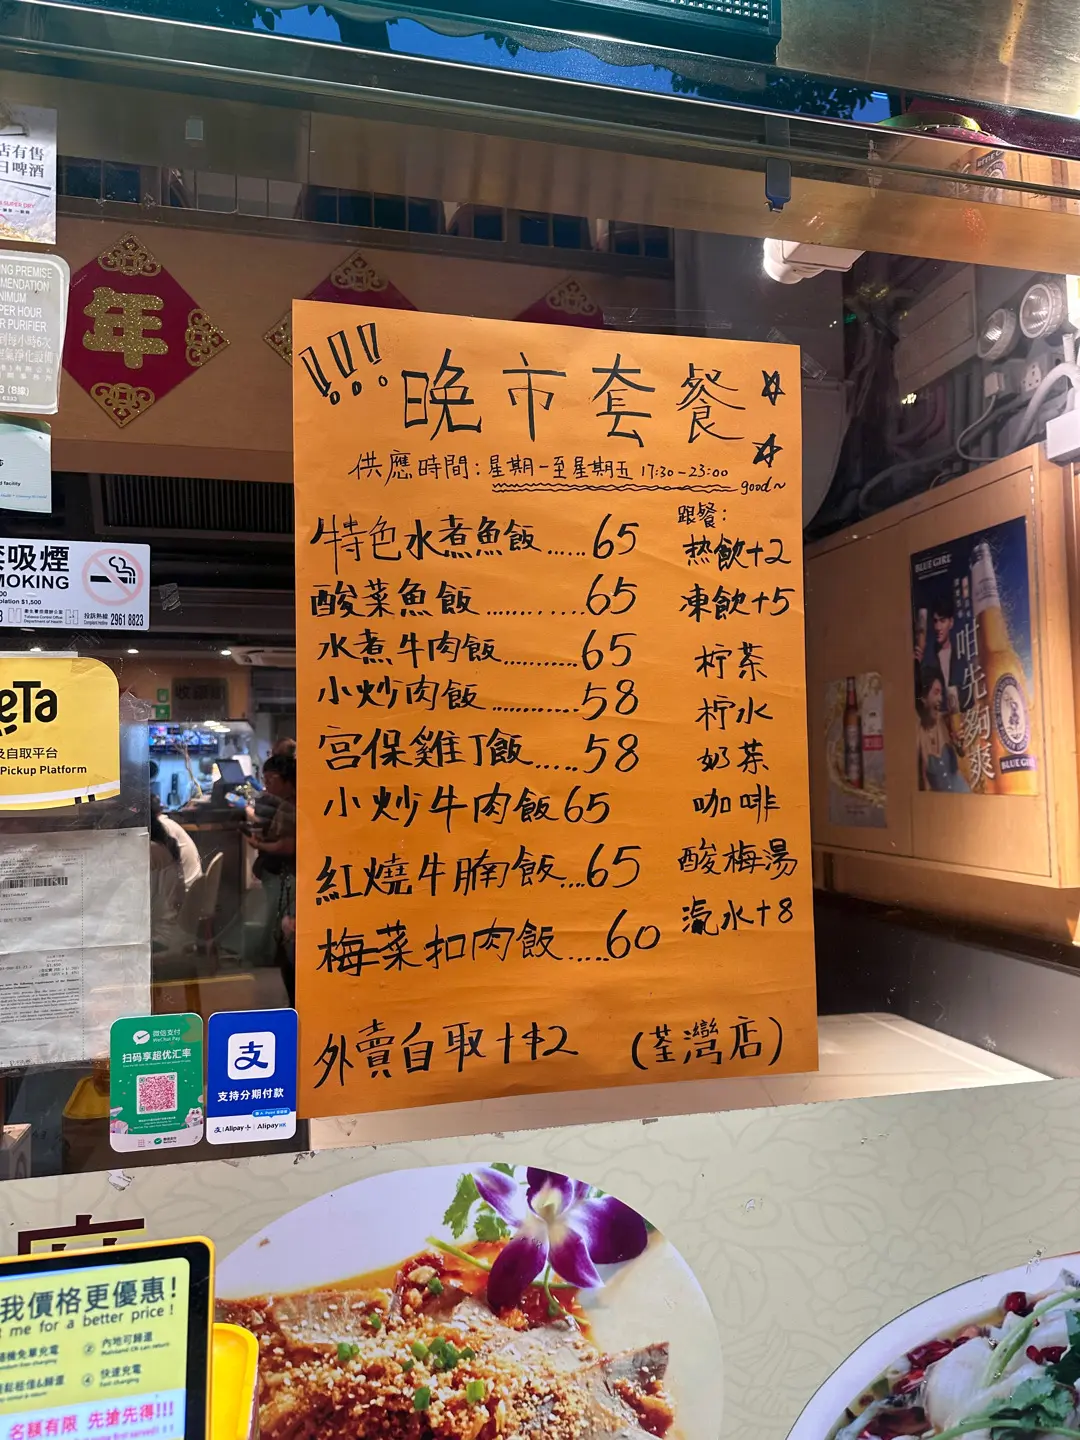 店有售
日啤酒
SUPER DRY
年
NG PREMISE
MENDATION
NIMUM
PER HOUR
R PURIFIER
吸煙
MOKING
$1,500
2961 8823
eTa
及自取平台
Pickup Platform
!!!晚市套餐
供應時間：星期一至星期五 17:30-23:00
good~
特色水煮魚飯......65
酸菜魚飯...........65
水煮牛肉飯..........65
小炒肉飯............58
宮保雞丁飯.....58
小炒牛肉飯65
紅燒牛腩飯...65
梅菜扣肉飯.....60
跟餐:
热飲+2
凍飲+5
柠茶
柠水
奶茶
咖啡
酸梅湯
汽水+8
外賣自取+$2 (荃灣店)
BLUE GIRL
咁先夠爽
BLUE GIRL
微信支付
WeChat Pay
扫码享超优汇率
支
支持分期付款
Alipay+ AlipayHK
我價格更優惠!
t me for a better price!
內地可歸還
快速充電
Fast charging
名額有限 先搶先得!!!